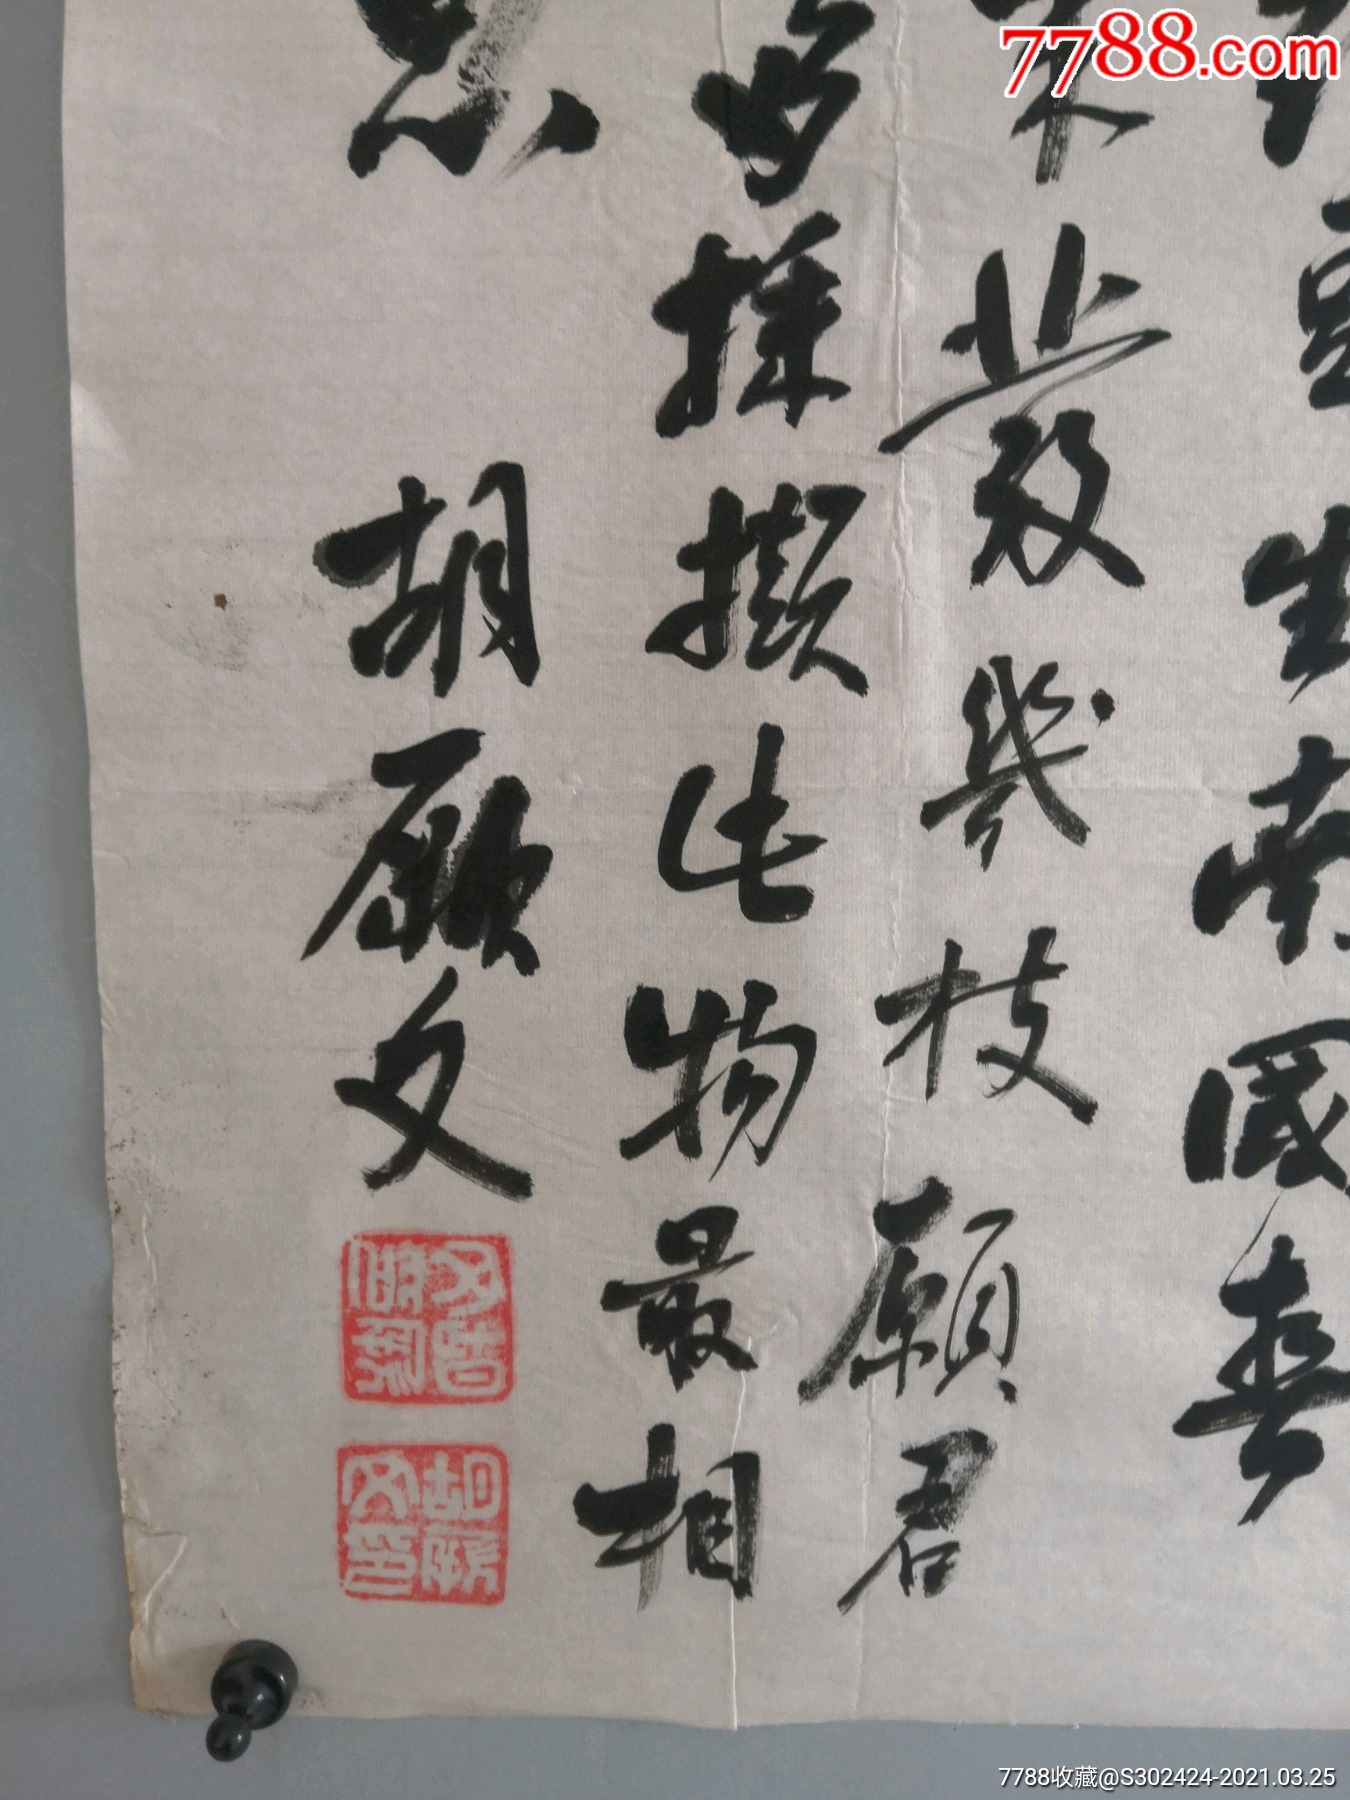 豆生南國春
来發幾枝願君
多採擷此物最相
思
胡厥文
胡厥文印
7788.com
7788收藏@S302424-2021.03.25